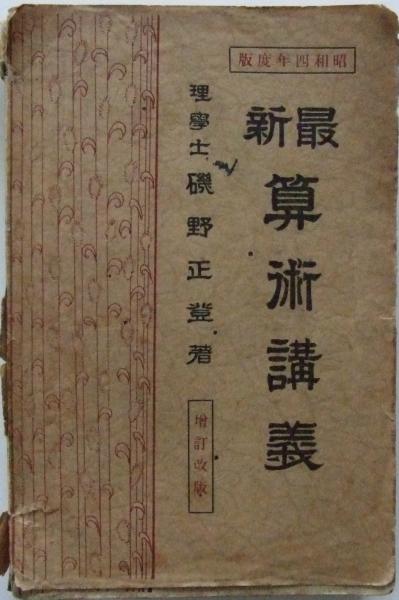 昭和四年度版
最新
算術講義
理學士 磯野正登著
增訂改版